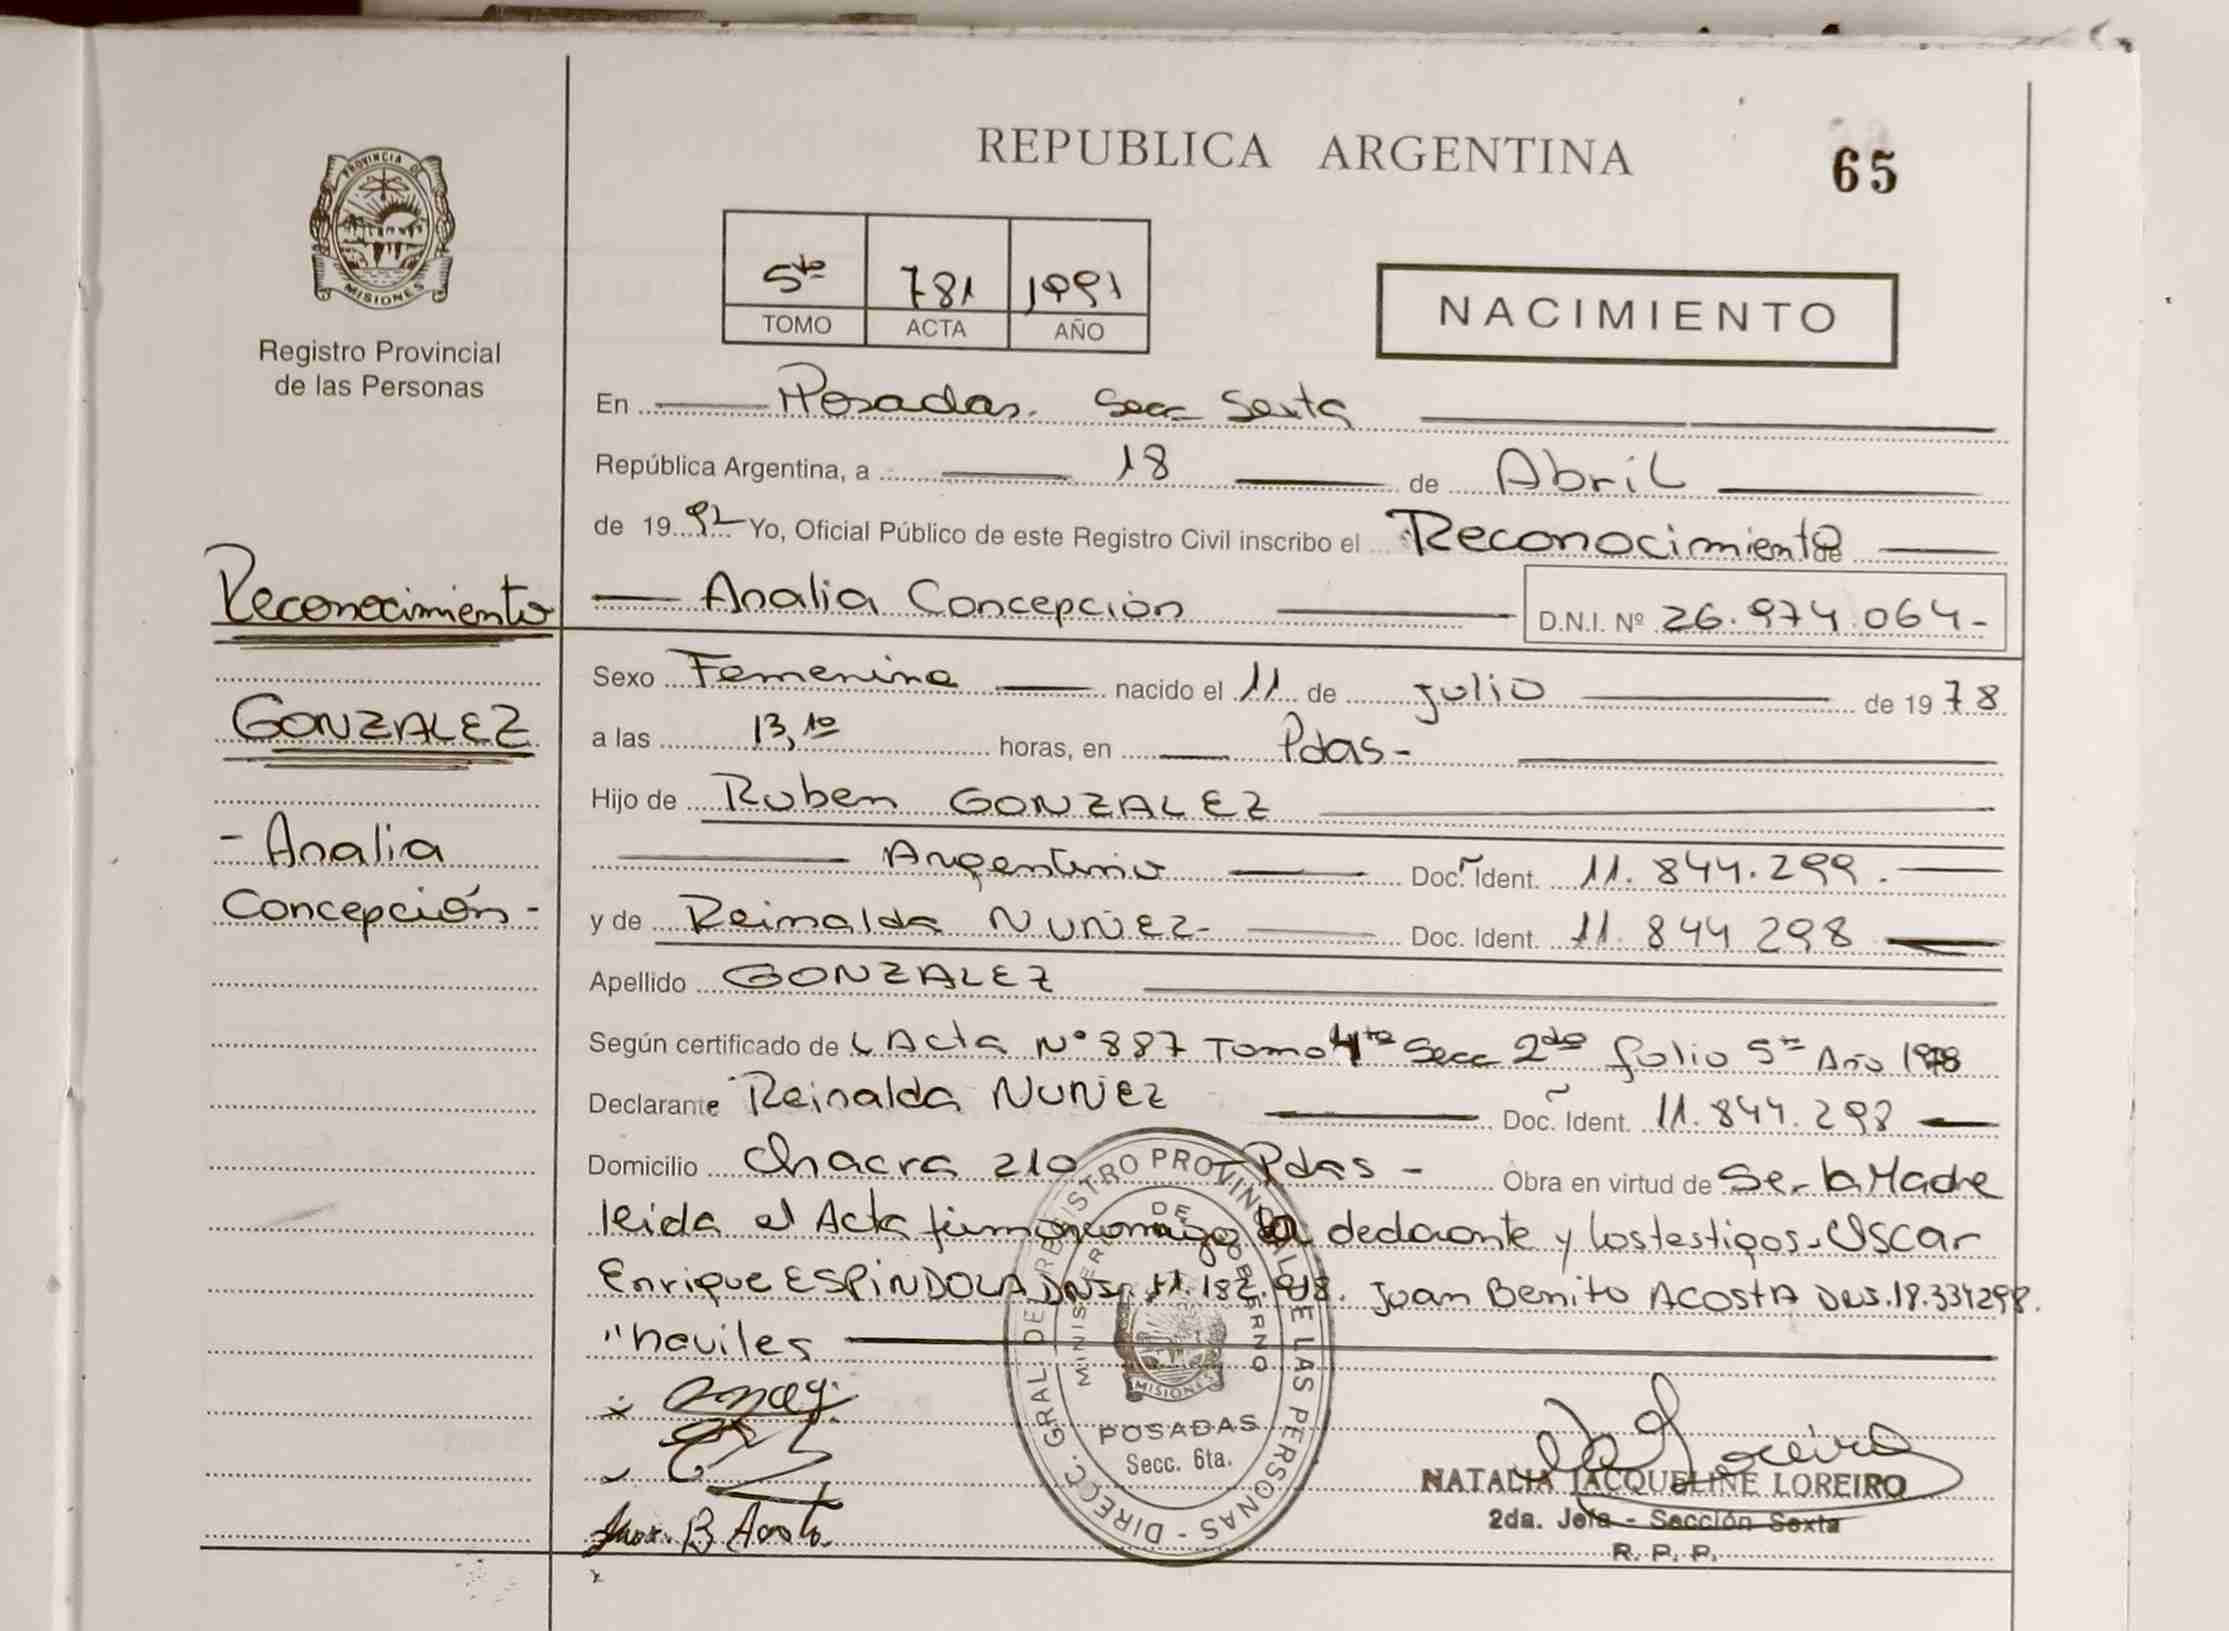 REPUBLICA ARGENTINA
65
PROVINCIA DE MISIONES
Registro Provincial
de las Personas
5to 781 1991
TOMO ACTA AÑO
NACIMIENTO
En Posadas. Secc Sexta
República Argentina, a 18 de Abril
de 19 92 Yo, Oficial Público de este Registro Civil inscribo el Reconocimiento de
Analia Concepción D.N.I. Nº 26.974.064-
Reconocimiento
GONZALEZ
- Analia
Concepción-
Sexo Femenino nacido el 11 de julio de 19 78
a las 13,10 horas, en Pdas-
Hijo de Ruben GONZALEZ
Argentino Doc. Ident. 11.844.299.
y de Reinalda NUÑEZ- Doc. Ident. 11.844 298
Apellido GONZALEZ
Según certificado de Acta Nº 887 Tomo 4to Secc 2da folio 5to Año 1978
Declarante Reinalda NUÑEZ Doc. Ident. 11.844.298
Domicilio Chacra 210 Pdas - Obra en virtud de Ser la Madre
leida el Acta la declarante y los testigos Oscar
Enrique ESPINDOLA 11.182. Juan Benito ACOSTA
"haviles
DIRECC. GRAL DE REGISTRO PROVINCIAL DE LAS PERSONAS -
MINISTERIO DE GOBIERNO
MISIONES
POSADAS
Secc. 6ta.
Juan B Acosta
NATALIA JACQUELINE LOREIRO
2da. Jefa - Sección Sexta
R. P. P.